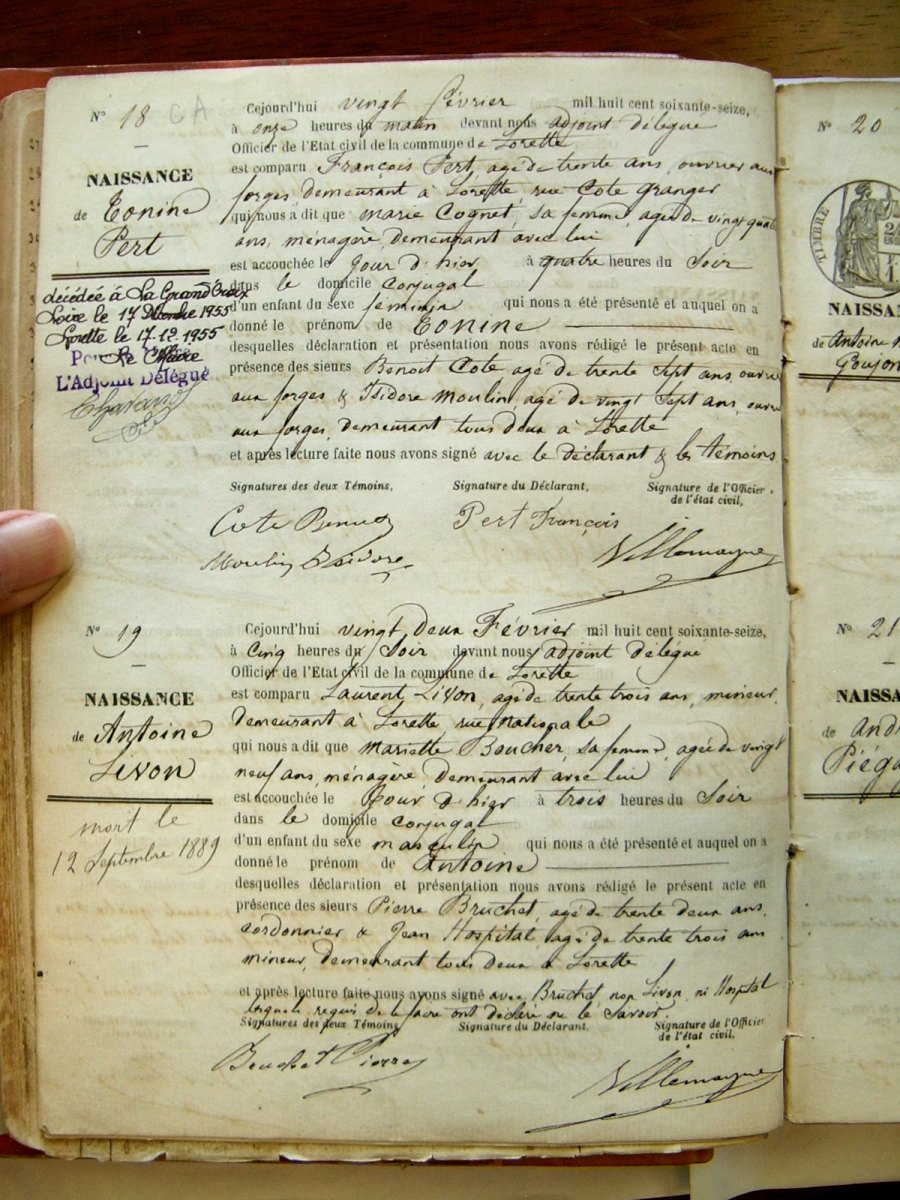 N° 18 CA
NAISSANCE
de Tonine
Pert
décédée à La Grand Croix
Loire le 17 Décembre 1955
Lorette le 17.12.1955
Le Maire
L'Adjoint Délégué
Cejourd'hui vingt février mil huit cent soixante-seize,
à onze heures du matin devant nous adjoint délégué
Officier de l'Etat civil de la commune de Lorette
est comparu François Pert, agé de trente ans, ouvrier aux
forges, demeurant à Lorette, rue Cote Granger
qui nous a dit que marie Cognet, sa femme, agée de vingt quatre
ans, ménagère, demeurant avec lui
est accouchée le Jour d'hier à quatre heures du Soir
dans le domicile conjugal
d'un enfant du sexe féminin qui nous a été présenté et auquel on a
donné le prénom de Tonine
desquelles déclaration et présentation nous avons rédigé le présent acte en
présence des sieurs Benoit Cote agé de trente Sept ans, ouvrier
aux forges & Isidore Moulin, agé de vingt Sept ans, ouvrier
aux forges, demeurant tous deux à Lorette
et après lecture faite nous avons signé avec le déclarant & les témoins
Signatures des deux Témoins, Signature du Déclarant, Signature de l'Officier
de l'état civil,
Cote Benoit Pert François
Moulin Isidore Villemagne
N° 19
NAISSANCE
de Antoine
Livon
mort le
12 Septembre 1889
Cejourd'hui vingt deux Février mil huit cent soixante-seize,
à Cinq heures du Soir devant nous adjoint délégué
Officier de l'Etat civil de la commune de Lorette
est comparu Laurent Livon, agé de trente trois ans, mineur
demeurant à Lorette rue Nationale
qui nous a dit que Mariette Boucher, sa femme, agée de vingt
neuf ans, ménagère demeurant avec lui
est accouchée le Jour d'hier à trois heures du Soir
dans le domicile conjugal
d'un enfant du sexe masculin qui nous a été présenté et auquel on a
donné le prénom de Antoine
desquelles déclaration et présentation nous avons rédigé le présent acte en
présence des sieurs Pierre Bruchet, agé de trente deux ans,
cordonnier & Jean Hospital, agé de trente trois ans
mineur, demeurant tous deux à Lorette
et après lecture faite nous avons signé avec Bruchet, non Livon, ni Hospital
lesquels requis de le faire ont déclaré ne le Savoir.
Signatures des deux Témoins, Signature du Déclarant. Signature de l'Officier
de l'état civil,
Bruchet Pierre Villemagne
N° 20
TIMBRE
NAISSAN
de Antoine
Goujon
N° 21
NAISSA
de And
Piég